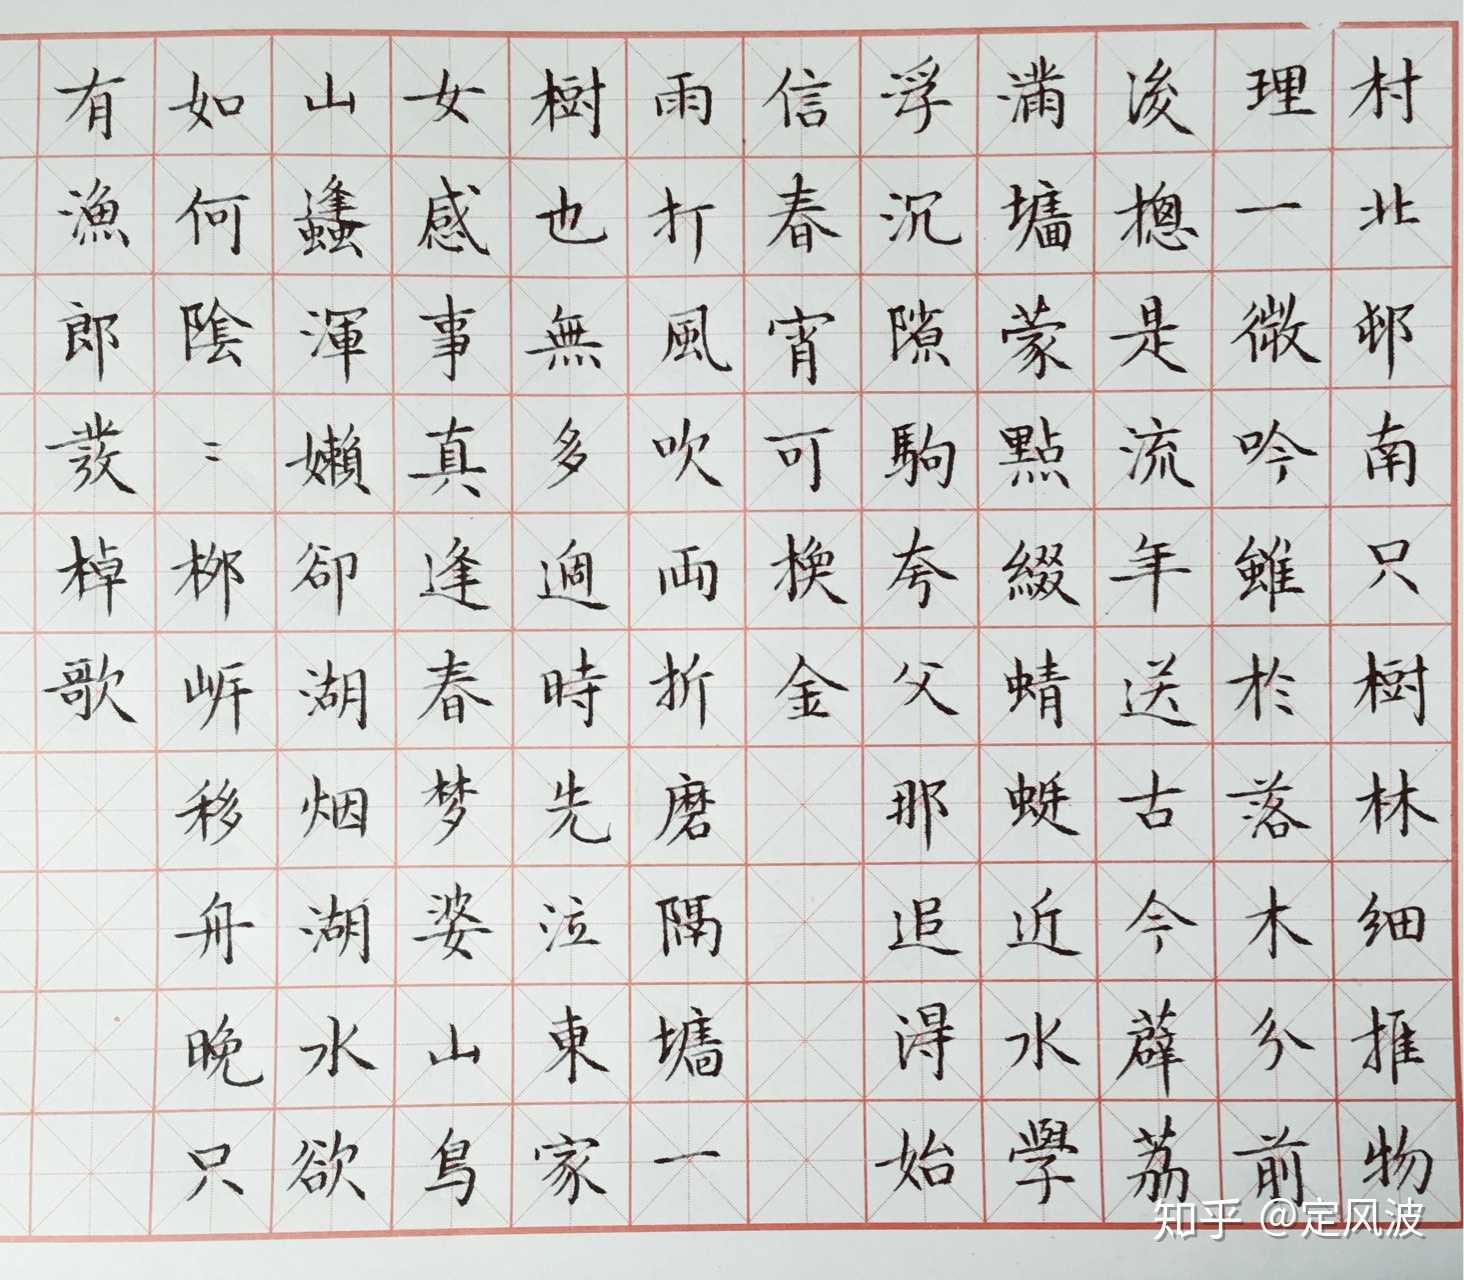 村北邨南只樹林細推物
理一微吟雖於落木分前
後摠是流年送古今薜荔
滿墻蒙點綴蜻蜓近水學
浮沉隙駒夸父那追得始
信春宵可換金
雨打風吹兩折磨隔墻一
樹也無多適時先泣東家
女感事真逢春梦婆山鳥
山蟲渾嬾卻湖烟湖水欲
如何陰〻柳岍移舟晚只
有漁郎發棹歌
知乎 @定风波